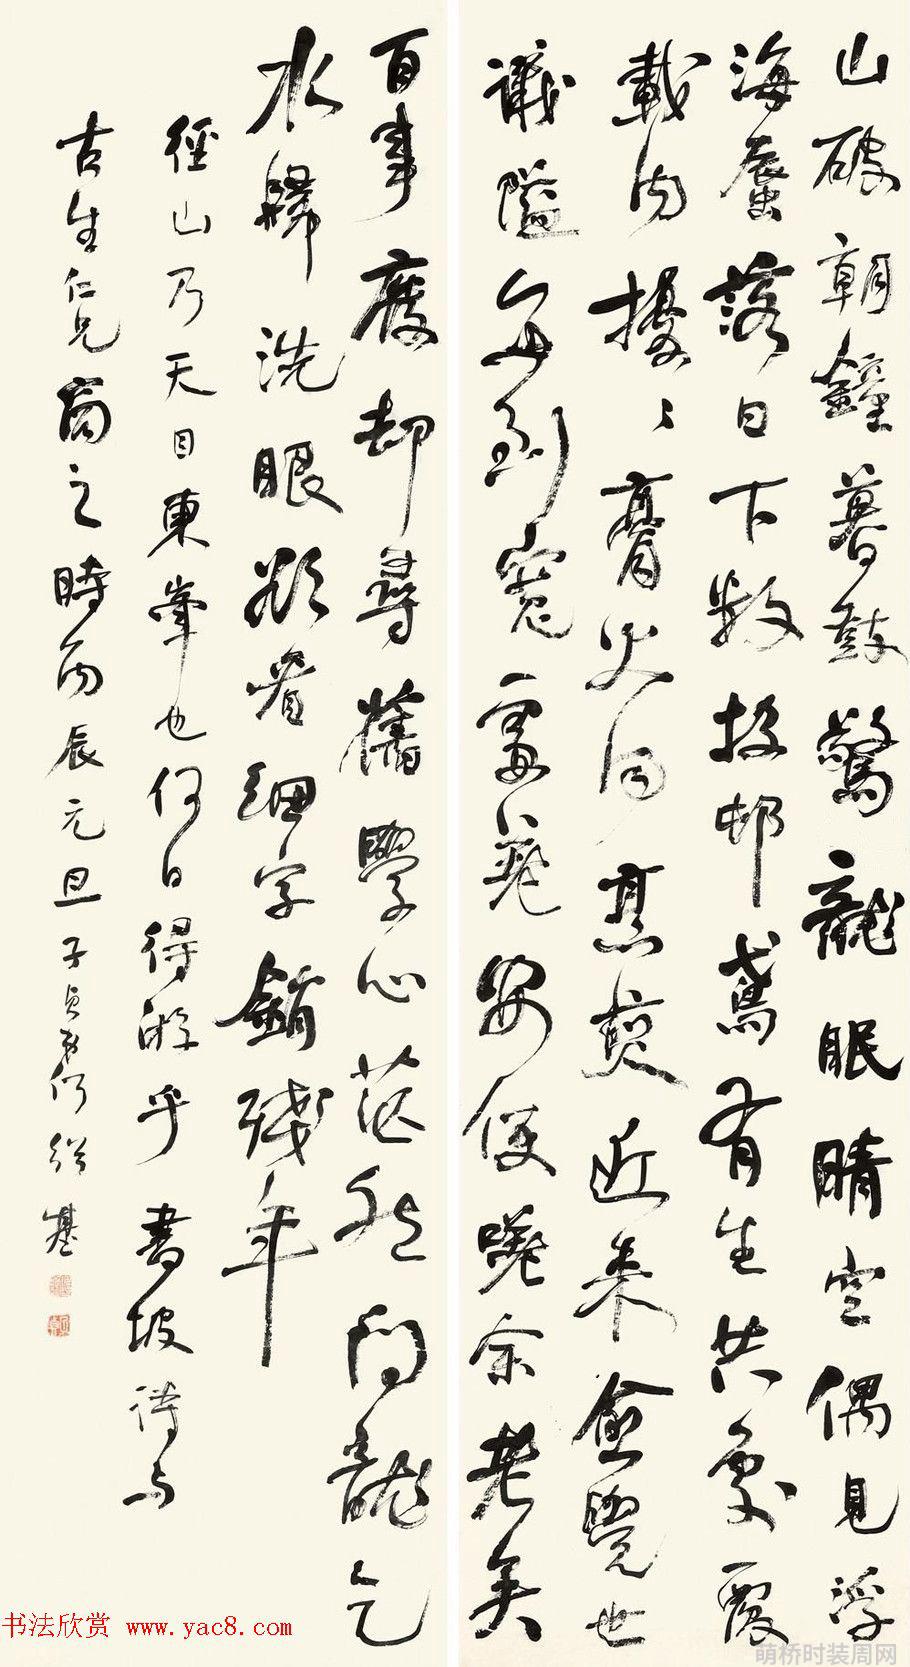 山破朝鐘暮鼓驚龍眠晴空偶見浮
海蜃落日下數投邨鳶有生共處覆
載內擾〻膏火同烹煎近來愈覺世
議隘每到寬處差安便嗟余老矣
百事廢却尋舊學心茫然問龍乞
水歸洗眼欲看細字銷殘年
徑山乃天目東峯也何日得游乎 書坡詩与
古生仁兄商之時丙辰元旦子貞弟何紹基
书法欣赏 www.yac8.com
萌桥时装周网